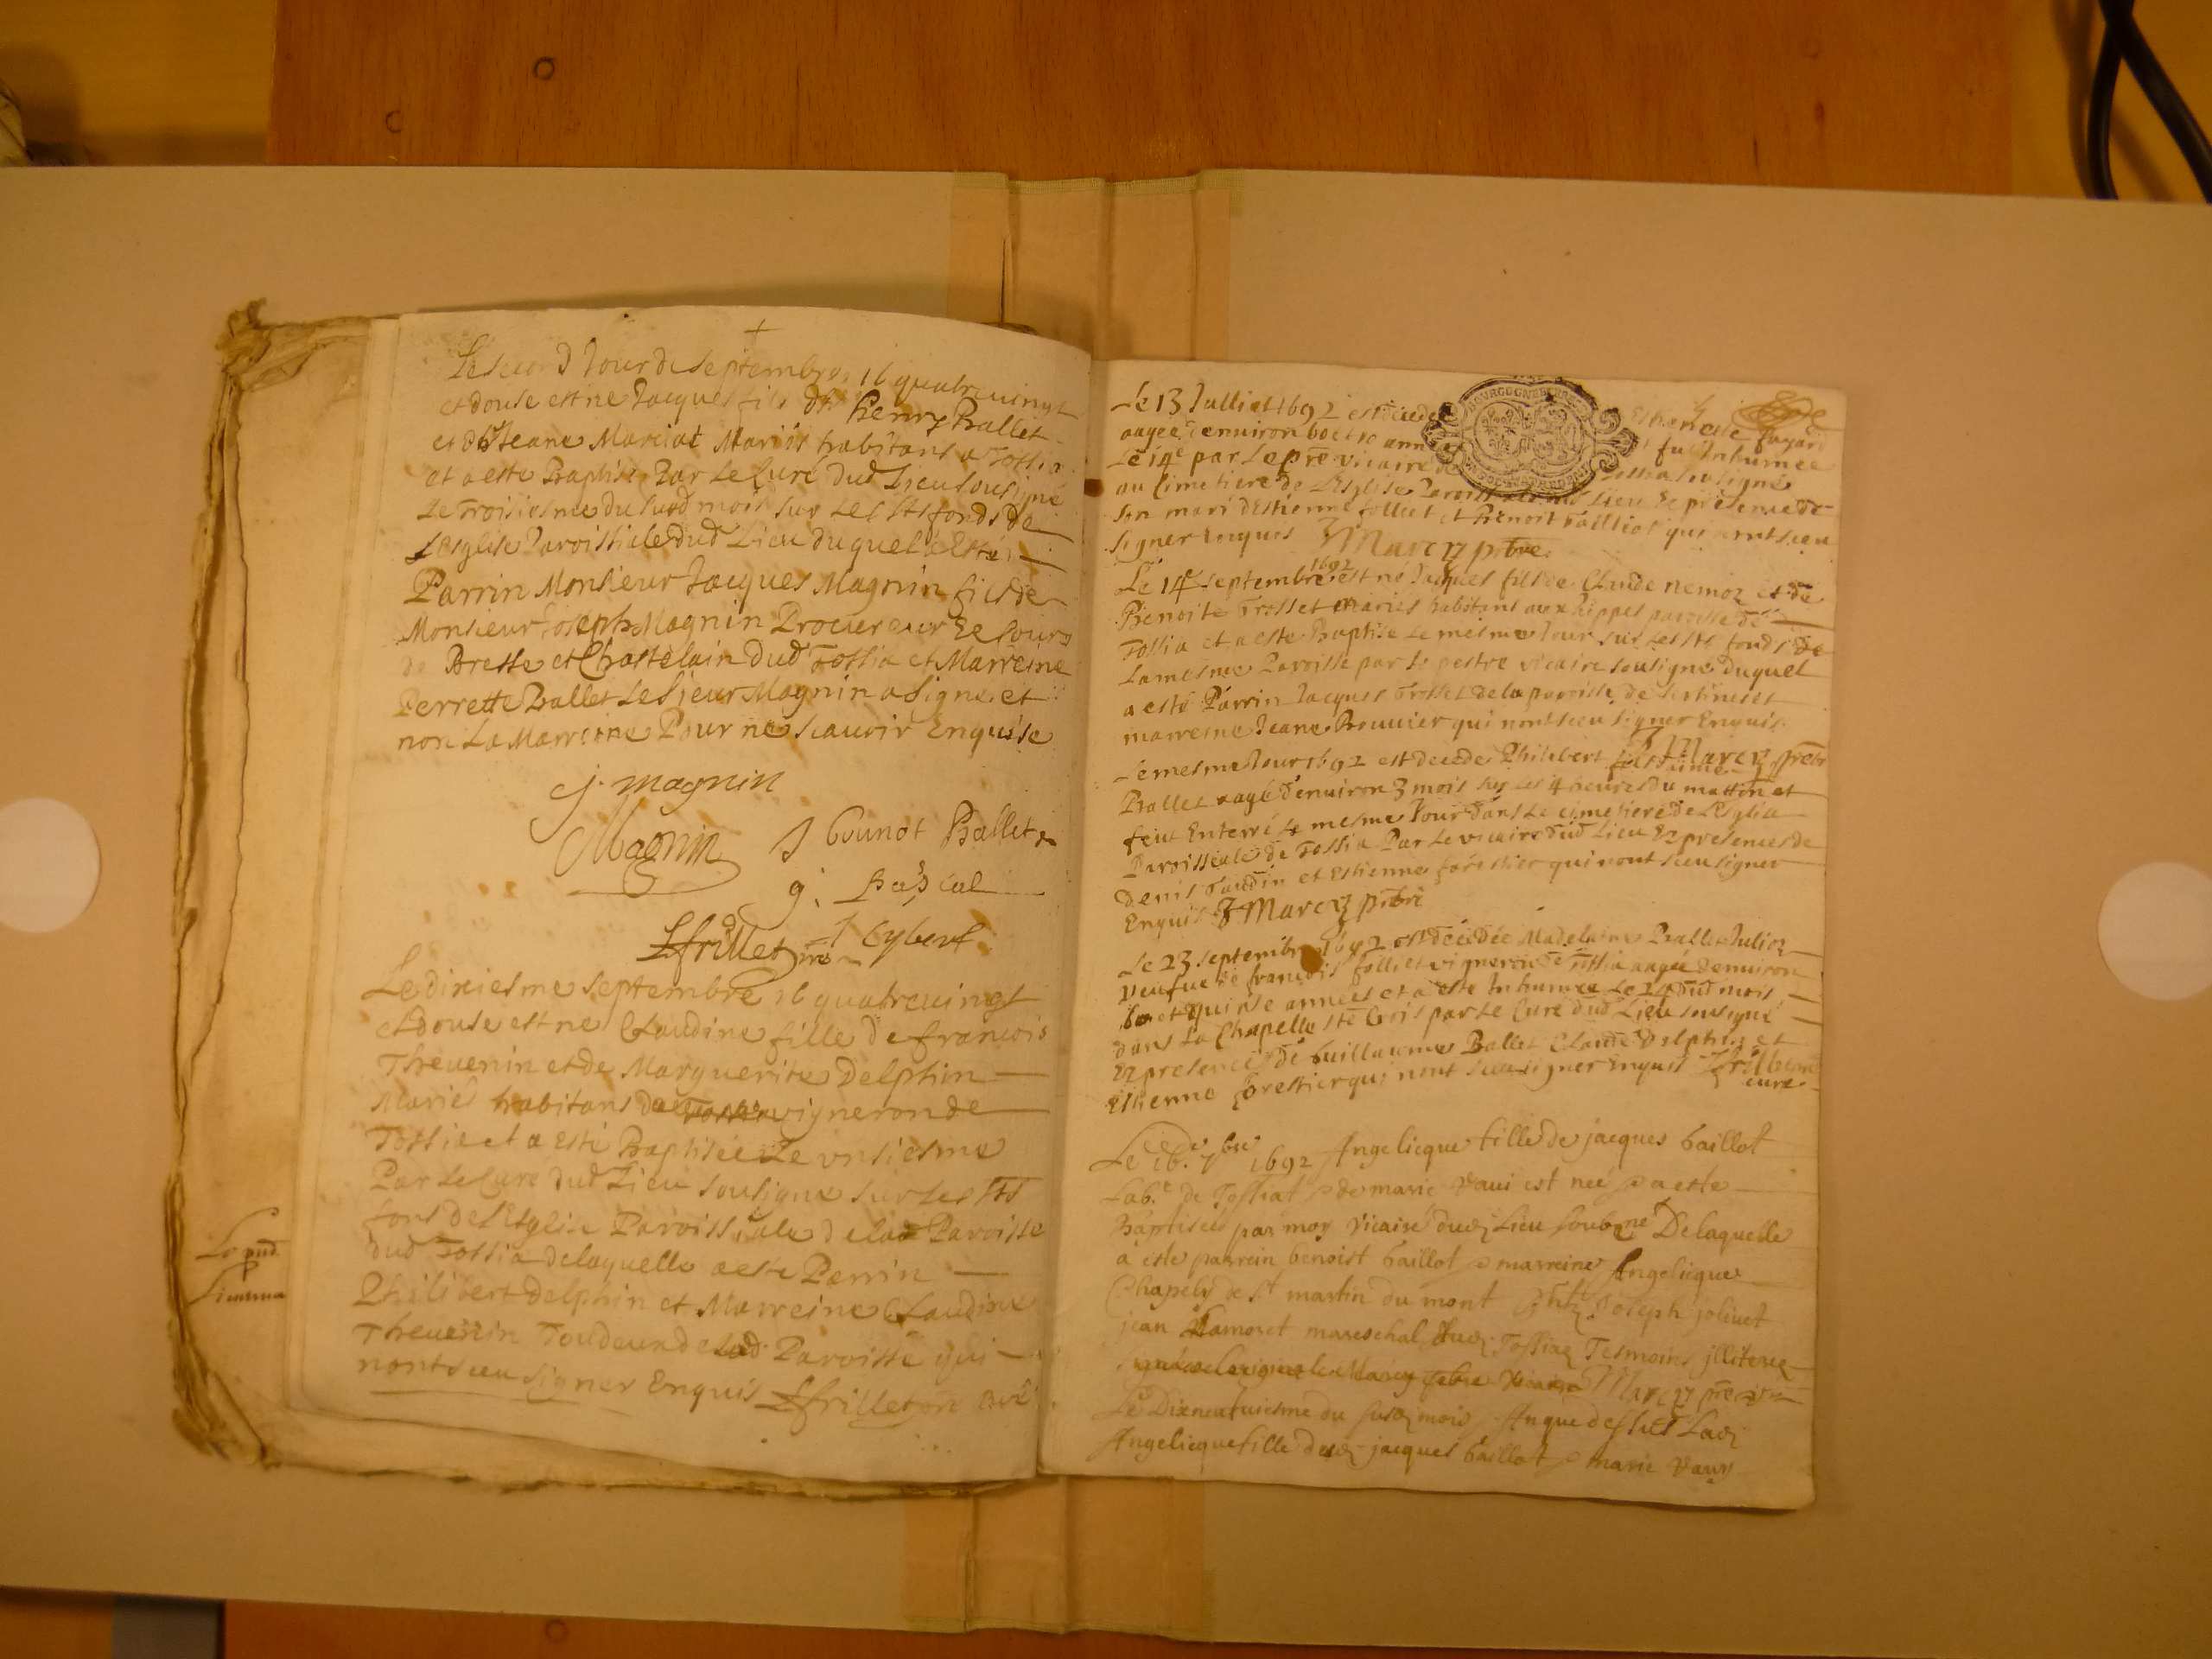 Le second Jour de septembre 16 quatrevingt
et douse est ne Jacques fils de Henry Ballet
et de Jeane Marciat Mariés habitans a Tossia
et a este Baptise Par le Curé dud Lieu sousigné
le troisiesme du susd mois sur les sts fonds de
lesglise Paroissiale dud Lieu duquel a Esté
Parrin Monsieur Jacques Magnin fils de
Monsieur Joseph Magnin Procureur Es Cours
de Bresse et Chastelain dud Tossia et Marreine
Perrette Ballet le sieur Magnin a signe et
non La Marreine Pour ne scauoir Enquise
j. magnin
Magnin J Gounot Ballet
g. Pascal
Cybert
Le dixiesme septembre 16 quatreuingt
et douse est ne Claudine fille de francois
Theuenin et de Marguerite Delphin
Mariés habitans vigneron de
Tossia et a esté Baptisée Le unsiesme
Par le Cure dud Lieu sousigne sur les sts
fons de lEsglise Paroissiale de lad Paroisse
dud Tossia de laquelle a este Parrin
Philibert Delphin et Marreine Claudine
Theuenin Tous deux de lad Paroisse qui
nont sceu signer Enquis
Le 13 Julliet 1692 est decedee
aagee denuiron ann fut Inhumee
Le 14e par Le pre vicaire de Tossia sousigné
au Cimetiere de LEsglise lieu Es presence de
son mari dEstienne folliet et Benoit Gailliot qui nont sceu
signer enquis Marcy pbtre
Le 14e septembre 1692 est né Jaques fils de Claude nemoz et de
Benoite Trosset mariés habitans aux hippes paroisse de
Tossia et a este Baptise le mesme Jour sur les sts fonds de
la mesme Paroisse par le pestre vicaire sousigne duquel
a esté Parrin Jacques Trosset de la paroisse de
marreine Jeane Bouuier qui nont sceu signer Enquis
Marcy prebt
Le mesme Jour 1692 est decede Philibert fils
Ballet aagé denuiron 3 mois sus les 4 heures du mattin et
feut Enterré le mesme Jour dans le cimetiere de LEsglise
Paroissiale de Tossia Par le vicaire dud Lieu Es presences de
Denis Gaudin et Estienne forestier qui nont sceu signer
Enquis Marcy pbtre
Le 23 septembre 1692 est decedée Madelaine Ballet
veufue de francois folliet vigneron de Tossia aagée denuiron
et quinse années et a este Inhumee Le 24 dud mois
dans La Chapelle par le Cure dud Lieu sousigné
Es presences de Guillaume Ballet Claude Delphin et
Estienne forestier qui nont sceu signer enquis
curé
Le 16e 7bre 1692 Angelicque fille de jacques Gaillot
Lab.r de Tossiat & de marie Vaui est neé & a este
Baptiseé par moy vicaire dud Lieu soubsné De laquelle
a este parrein benoist Gaillot & marreine Angelicque
Chapels de st martin du mont Joseph joliuet
jean Ramoret mareschal dud Tossiat Tesmoins jlliterez
Marcy
Le Dixneufuiesme du susd mois An que dessus Lad
Angelicque fille dud jacques Gaillot & marie Vauy